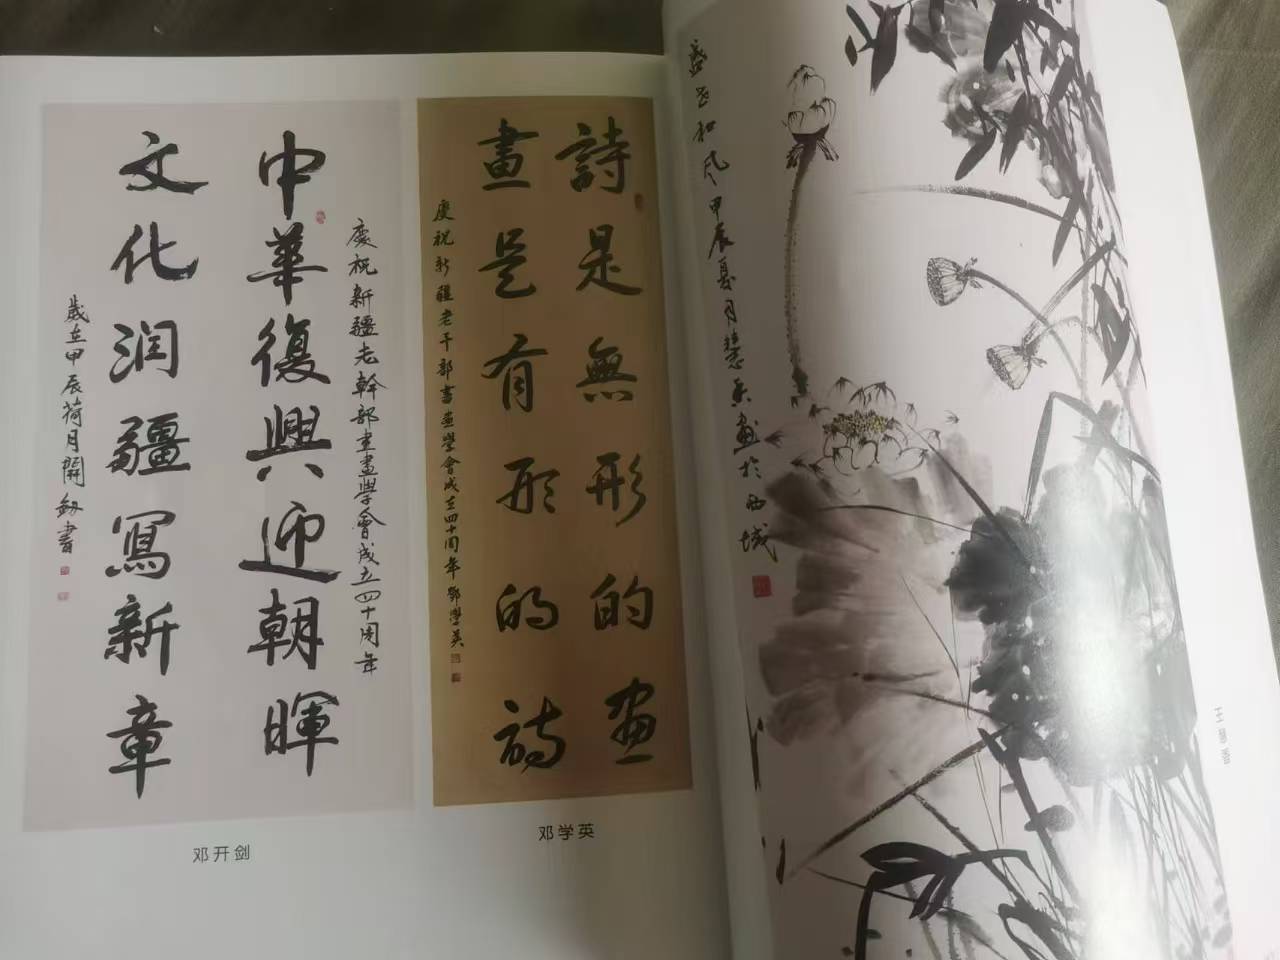 慶祝新疆老幹部書畫學會成立四十周年
中華復興迎朝暉
文化润疆寫新章
歲在甲辰荷月開劍書
邓开剑
詩是無形的画
畫是有形的詩
慶祝新疆老干部書画學會成立四十周年 鄧學英
邓学英
盛世和风 甲辰夏月慧香画於西域